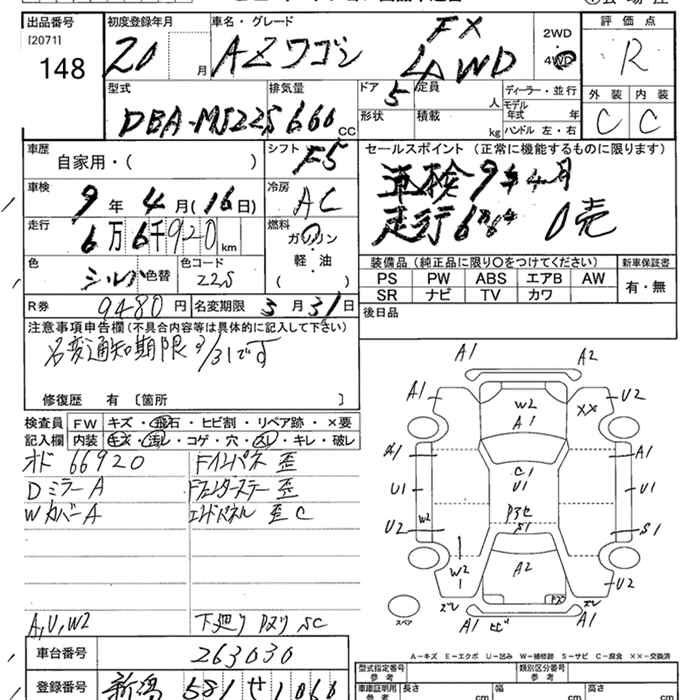 出品番号 初度登録年月 車名・グレード 評価点
[2071]
148
20 月 AZワゴン FX 4WD
2WD
4WD
R
外装 内装
C C
型式 排気量 ドア 定員 ディーラー・並行
DBA-MJ22S 660 CC 5 人
モデル年式 年
形状 積載 kg ハンドル 左・右
車歴 シフト セールスポイント (正常に機能するものに限ります)
自家用・( ) F5
車検 冷房 車検9年4月
9年4月(16日) AC 走行6万4 0売
走行 燃料
6万6千920 km ガソリン
軽・油
( )
色 色コード
シルバ 色替 22S
装備品(純正品に限り○をつけてください) 新車保証書
PS PW ABS エアB AW 有・無
SR ナビ TV カワ
R券 9480円 名変期限 3月31日 後日品
注意事項申告欄(不具合内容等は具体的に記入して下さい)
名変通知期限3/31です
修復歴 有 〔箇所 〕
検査員 FW キズ・飛石・ヒビ割・リペア跡・×要
記入欄 内装 キズ・汚レ・コゲ・穴・スレ・キレ・破レ
オド 66920 Fインパネ 歪
Dミラー A
Wカバー A エンドパネル 歪 C
A,U,W2 下廻り SC
A1 A2
A1 W2 A1 XX U2
A1 C1 A1
U1 U1 U1
W2 S1
U2 S1
W2 A2 U2
ズレ ズレ
スペア A1 ヒビ A1
A−キズ E−エクボ U−凹み W−補修跡 S−サビ C−腐食 ××−交換済
車台番号 263030 型式指定番号 参考 類別区分番号 参考
登録番号 新潟 581 せ 1060 車庫証明用 参考 長さ cm 幅 cm 高さ cm